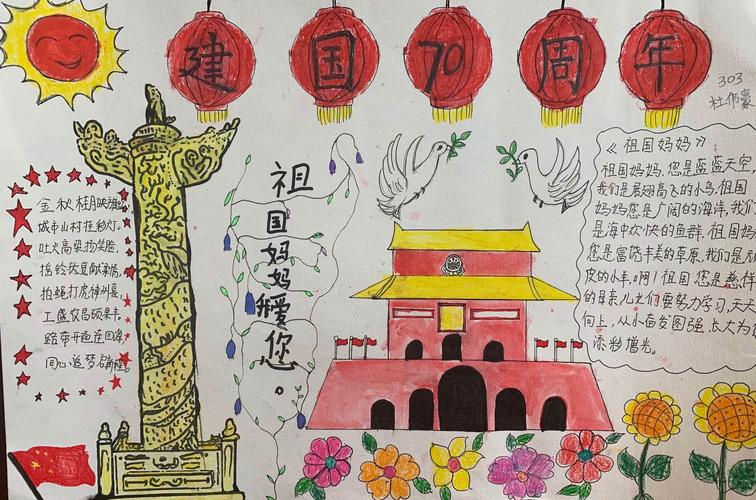 建国70周年
303
杜伟豪
祖国妈妈我爱您。
金秋桂月映旗红
城市山村挂彩灯。
吐火高架扬笑脸,
拍蝇打虎神州喜,
工盛农昌硕果丰。
路带开通连四海,
同心追梦
《祖国妈妈》
祖国妈妈,您是蓝蓝天空,
我们是展翅高飞的小鸟,祖国
妈妈您是广阔的海洋,我们
是海中欢快的鱼群,祖国妈
您是富饶丰美的草原,我们是
皮的小羊,啊!祖国您是慈祥
的母亲儿女们要努力学习,天天
向上,从小奋发图强,长大为
添彩增光。